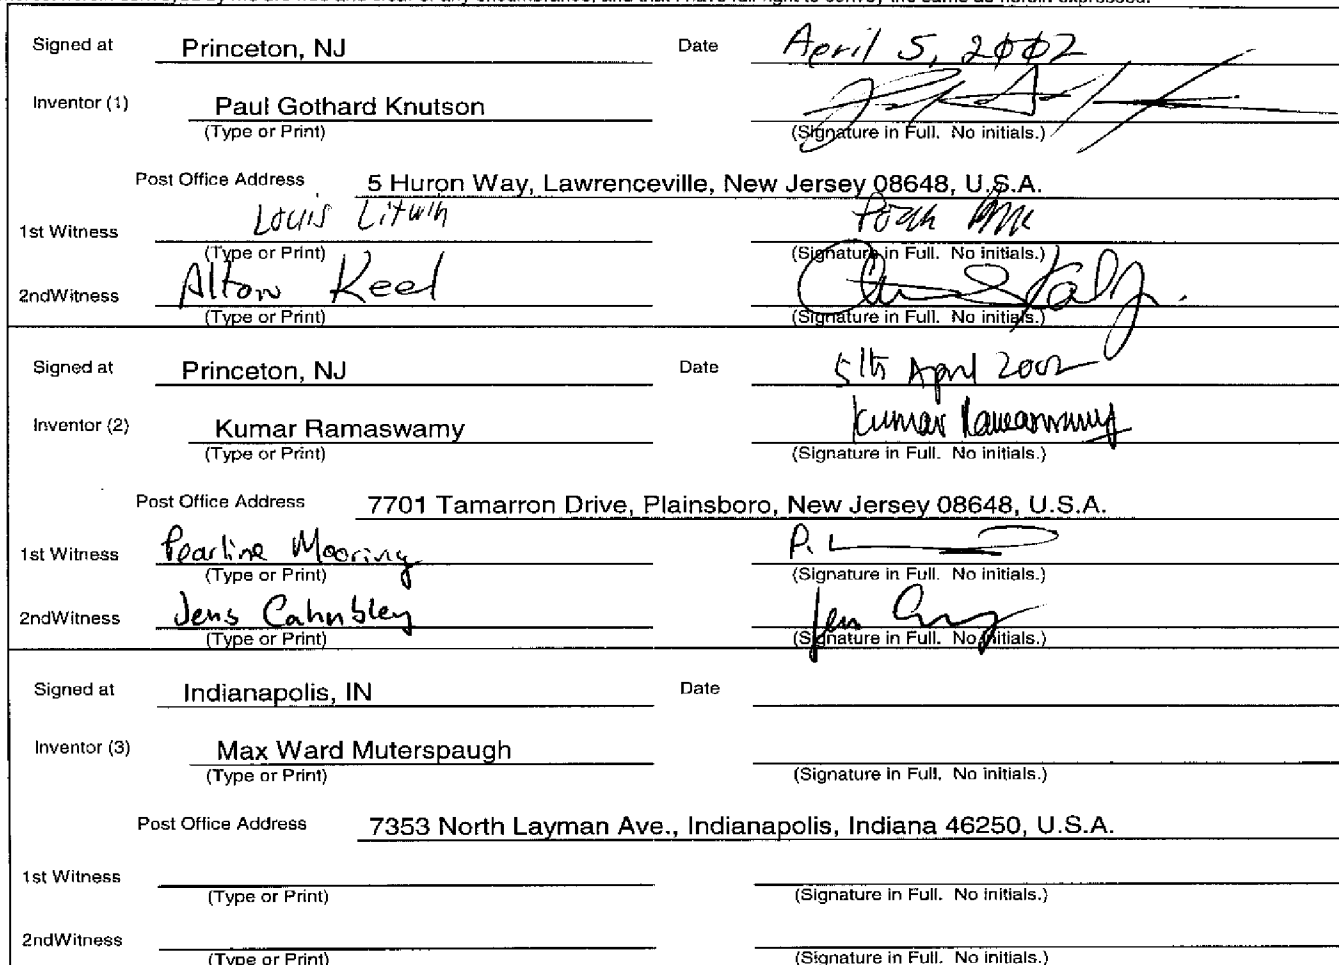 Signed at Princeton, NJ Date April 5, 2002
Inventor (1) Paul Gothard Knutson
(Type or Print) (Signature in Full. No initials.)
Post Office Address 5 Huron Way, Lawrenceville, New Jersey 08648, U.S.A.
1st Witness Louis Litwin
(Type or Print) (Signature in Full. No initials.)
2ndWitness Alton Keel
(Type or Print) (Signature in Full. No initials.)
Signed at Princeton, NJ Date 5th April 2002
Inventor (2) Kumar Ramaswamy Kumar Ramaswamy
(Type or Print) (Signature in Full. No initials.)
Post Office Address 7701 Tamarron Drive, Plainsboro, New Jersey 08648, U.S.A.
1st Witness Pearline Mooring
(Type or Print) (Signature in Full. No initials.)
2ndWitness Jens Cahnbley
(Type or Print) (Signature in Full. No initials.)
Signed at Indianapolis, IN Date
Inventor (3) Max Ward Muterspaugh
(Type or Print) (Signature in Full. No initials.)
Post Office Address 7353 North Layman Ave., Indianapolis, Indiana 46250, U.S.A.
1st Witness
(Type or Print) (Signature in Full. No initials.)
2ndWitness
(Type or Print) (Signature in Full. No initials.)